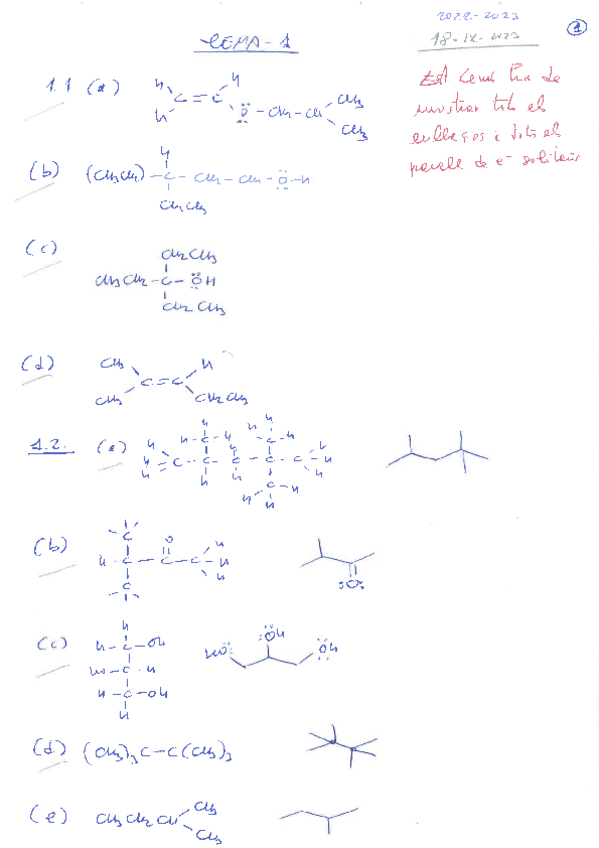 2022-2023
18-IX-2023
1
TEMA-1
1.1 (a) H H C=C H Ö-CH2-CH CH3 CH3
Est tema ha de
mostrar tots els
enllaços i tots els
parells de e- solitaris
(b) (CH3CH2) H -C-CH2-CH2-Ö-H
CH2CH3
(c) CH2CH3
CH3CH2-C-ÖH
CH2CH3
(d) CH3 H
C=C
CH3 CH2CH3
1.2. (a) H H H H H H
H-C-C-C-C-C-H
H H H-C-H H
H
(b) C
H-C-C-C-H
O H H
C
:O:
(c) H
H-C-OH
HO-C-H
H-C-OH
H
HÖ: :ÖH :ÖH
(d) (CH3)3C-C(CH3)3
(e) CH3CH2CH CH3
CH3